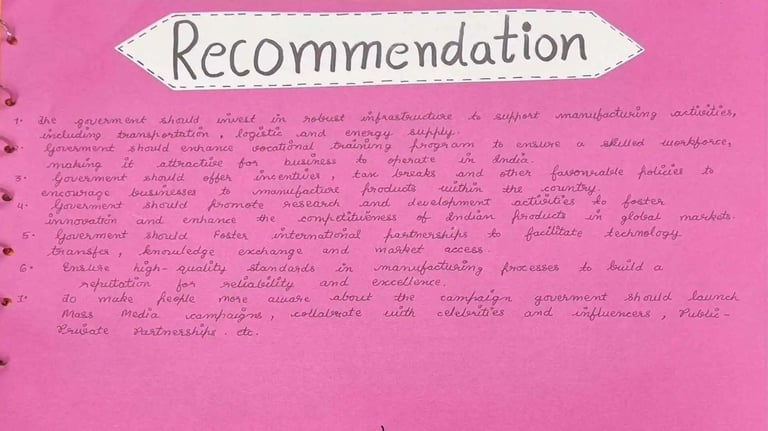 Recommendation
1. The goverment should invest in robust infrastructure to support manufacturing activities,
including transportation, logistic and energy supply.
Goverment should enhance vocational training program to ensure a skilled workforce,
making it attractive for business to operate in India.
3. Goverment should offer incentives, tax breaks and other favourable policies to
encourage businesses to manufacture products within the country.
4. Goverment should promote research and development activities to foster
innovatin and enhance the competitiveness of Indian products in global markets.
5. Goverment should Foster international partnerships to facilitate technology
transfer, knowledge exchange and market access.
6. Ensure high-quality standards in manufacturing processes to build a
reputation for reliability and excellence.
To make people more aware about the campaign goverment should launch
Mass Media campaigns, collabrate with celebrities and influencers, Public-
Private Partnerships. etc.